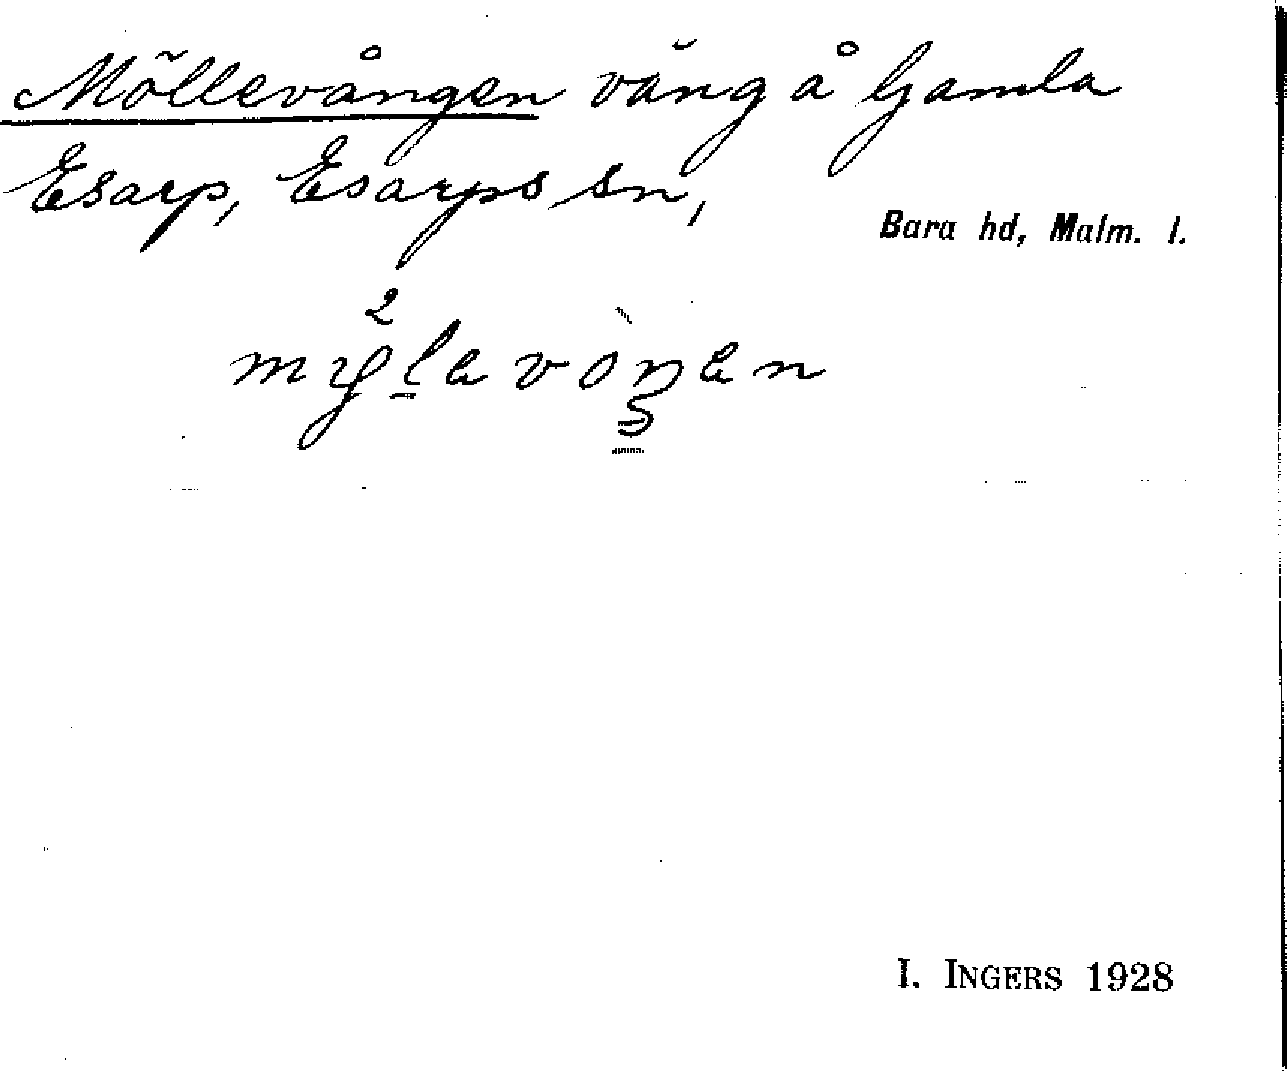 Möllevången vång å Gamla
Esarp, Esarps sn,
Bara hd, Malm. l.
I. INGERS 1928